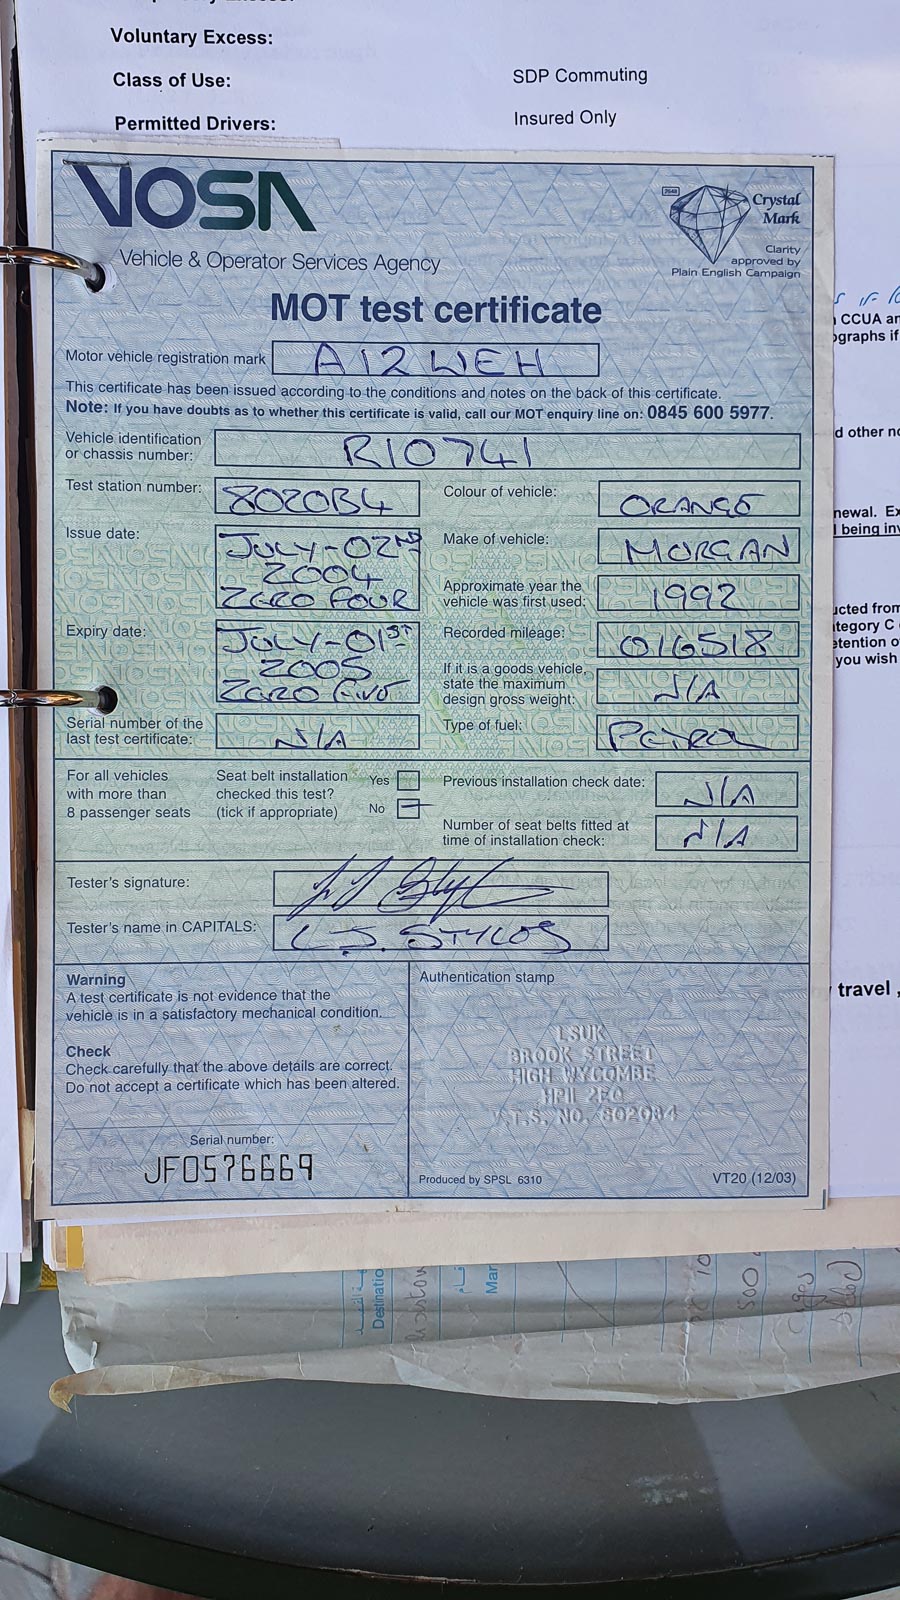 Voluntary Excess:
Class of Use: SDP Commuting
Permitted Drivers: Insured Only
VOSA
Vehicle & Operator Services Agency
Crystal
Mark
Clarity
approved by
Plain English Campaign
MOT test certificate
Motor vehicle registration mark A12 WEH
This certificate has been issued according to the conditions and notes on the back of this certificate.
Note: If you have doubts as to whether this certificate is valid, call our MOT enquiry line on: 0845 600 5977.
Vehicle identification
or chassis number: R10741
Test station number: 8020B4
Colour of vehicle: ORANGE
Issue date: JULY-02ND
2004
ZERO FOUR
Make of vehicle: MORGAN
Approximate year the
vehicle was first used: 1992
Expiry date: JULY-01ST
2005
ZERO FIVE
Recorded mileage: 016518
If it is a goods vehicle,
state the maximum
design gross weight: N/A
Serial number of the
last test certificate: N/A
Type of fuel: PETROL
For all vehicles
with more than
8 passenger seats
Seat belt installation
checked this test?
(tick if appropriate)
Yes
No
Previous installation check date: N/A
Number of seat belts fitted at
time of installation check: N/A
Tester's signature:
Tester's name in CAPITALS: L.J. STYLES
Warning
A test certificate is not evidence that the
vehicle is in a satisfactory mechanical condition.
Check
Check carefully that the above details are correct.
Do not accept a certificate which has been altered.
Serial number:
JF0576669
Authentication stamp
LSUK
BROOK STREET
HIGH WYCOMBE
HP11 2EQ
V.T.S. NO. 802084
Produced by SPSL 6310
VT20 (12/03)
CCUA
ographs if
d other
newal.
being
ucted from
ategory C
etention
you wish
travel ,
Destination
500